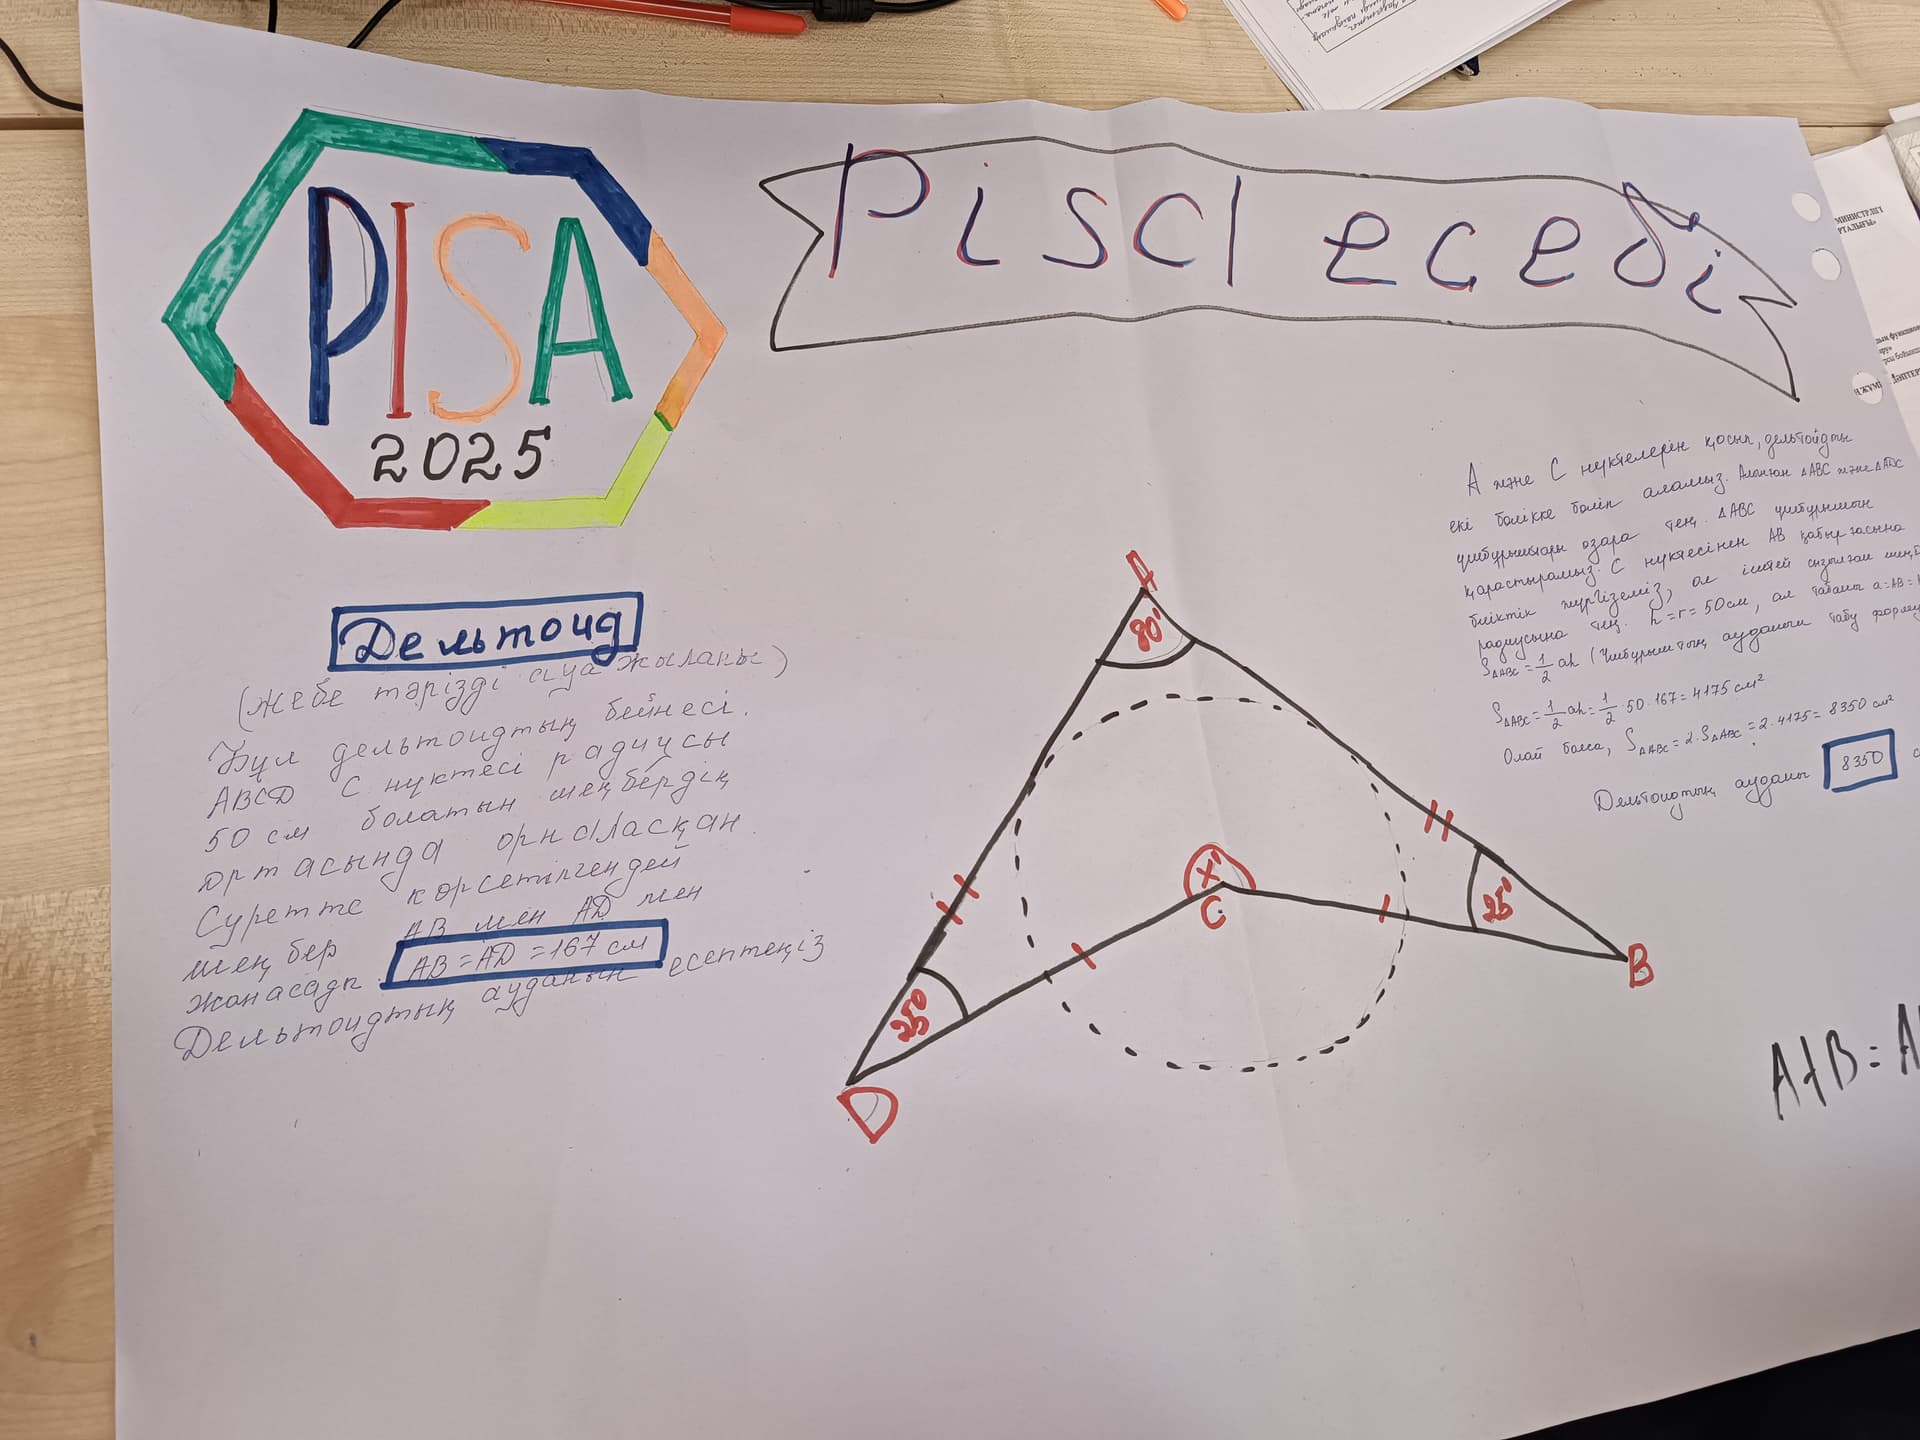 PISA
2025
Pisa есебі
Дельтоид
(жебе тәрізді ауа жыланы)
Бұл дельтоидтың бейнесі.
ABCD C нүктесі радиусы
50 см болатын шеңбердің
ортасында орналасқан.
Суретте көрсетілгендей
шеңбер AB мен AD мен
жанасады AB = AD = 167 см
Дельтоидтың ауданын есептеңіз
A
80°
X°
C
25°
B
25°
D
A және C нүктелерін қосып, дельтоидты
екі бөлікке бөліп аламыз. Алынған △ABC және △ADC
үшбұрыштары өзара тең. △ABC үшбұрышын
қарастырамыз. C нүктесінен AB қабырғасына
биіктік жүргіземіз, ол іштей сызылған
радиусына тең. h=r=50см, ал табаны a=AB=
S△ABC = 1/2 ah (Үшбұрыштың ауданын табу
S△ABC = 1/2 ah = 1/2 · 50 · 167 = 4175 см²
Олай болса, S△ABC = 2·S△ABC = 2·4175 = 8350 см²
Дельтоидтың ауданы 8350
A+B=A
МИНИСТРЛІГІ